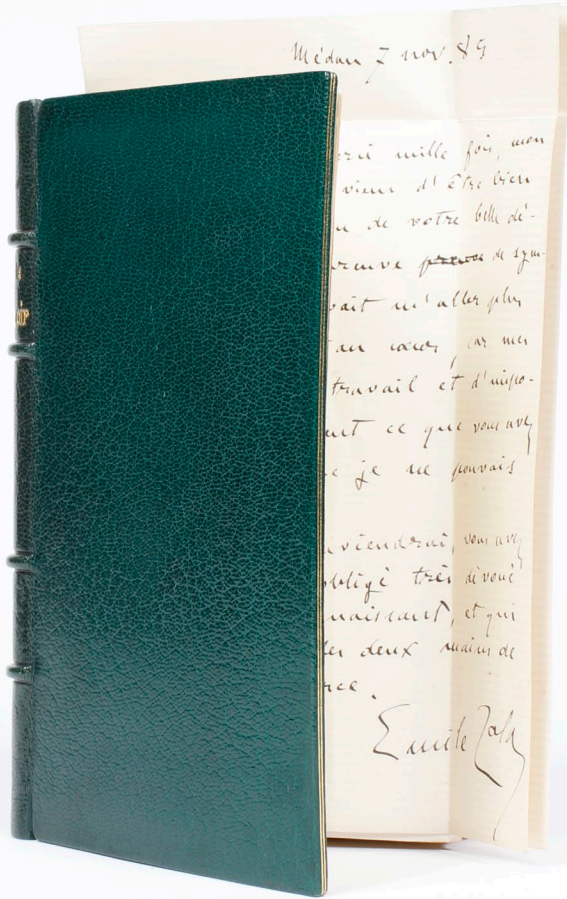 Médan 7 nov. 89
mille fois, mon
viens d'être bien
de votre belle dé-
preuve de sym-
vait m'aller plus
au cœur, car mes
travail et d'impo-
ce que vous avez
je ne pouvais
viendrai, vous avez
obligé très dévoué
naissant, et qui
les deux mains de
rce.
Emile Zola